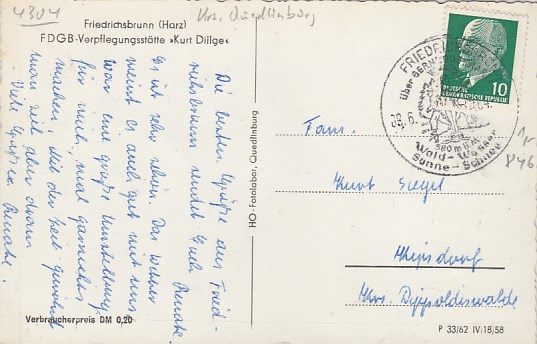 4304
Krs. Quedlinburg
Friedrichsbrunn (Harz)
FDGB-Verpflegungsstätte »Kurt Dillge«
Die besten Grüße aus Fried-
richsbrunn sendet Euch Renate.
Es ist sehr schön. Das Wetter
meint es auch gut mit uns.
War eine große Umstellung
für mich, mal garnichts
machen. Mit der Zeit gewöhnt
man sich aber daran
Viele Grüße Renate.
Verbraucherpreis DM 0,20
HO-Fotolabor, Quedlinburg
10
DEUTSCHE
DEMOKRATISCHE REPUBLIK
über
580 m ü.M.
Wald - Wasser
Sonne - Schnee
846
Fam.
Kurt Siegel
Krs. Dippoldiswalde
P 33/62 IV/18/58